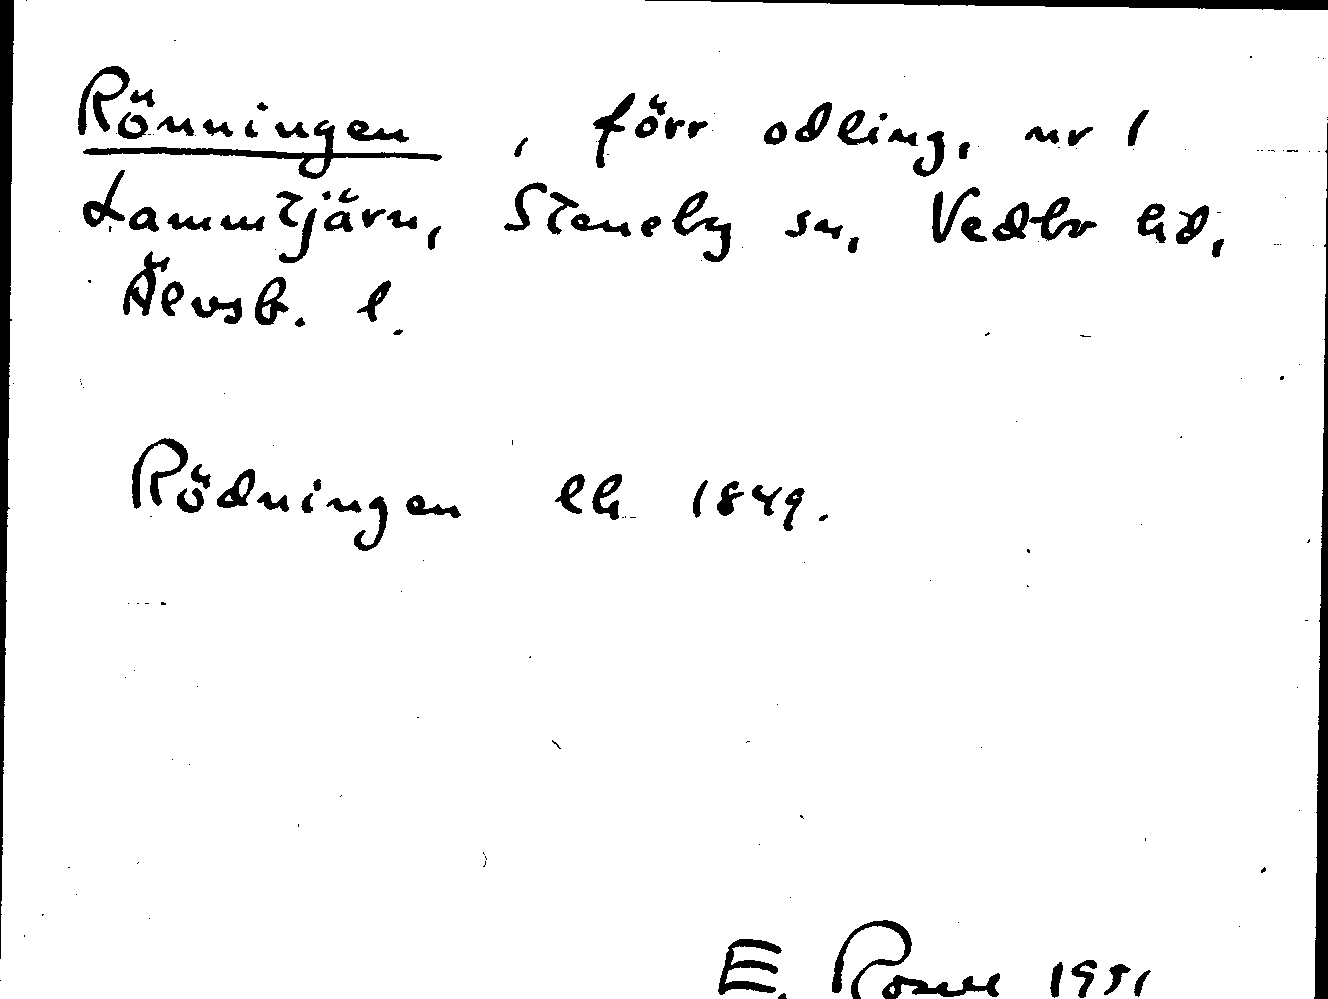 Rönningen , förr odling, nr 1
Lammtjärn, Steneby sn, Vedbo hd,
Älvsb. l.
Rödningen lh 1849.
E. Rosell 1951